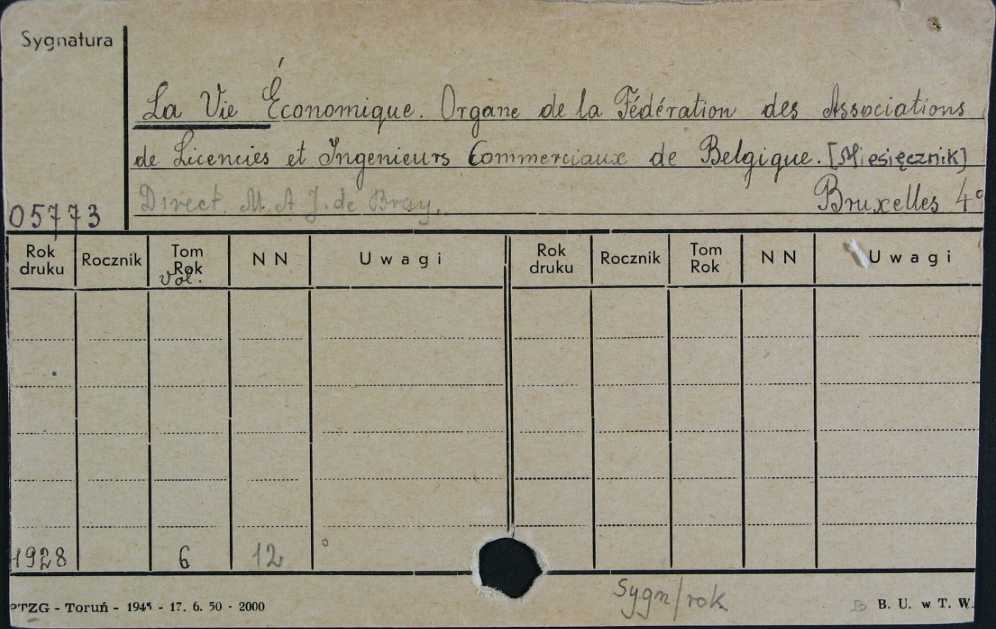 Sygnatura
La Vie Économique. Organe de la Fédération des Associations
de Licencies et Ingenieurs Commerciaux de Belgique. [Miesięcznik]
05773 Direct. M. A J. de Bray. Bruxelles 4°
Rok druku Rocznik Tom Rok Vol. N N Uwagi Rok druku Rocznik Tom Rok N N Uwagi
1928 6 12
Sygn/rok
PTZG - Toruń - 1945 - 17. 6. 50 - 2000 B. U. w T. W.